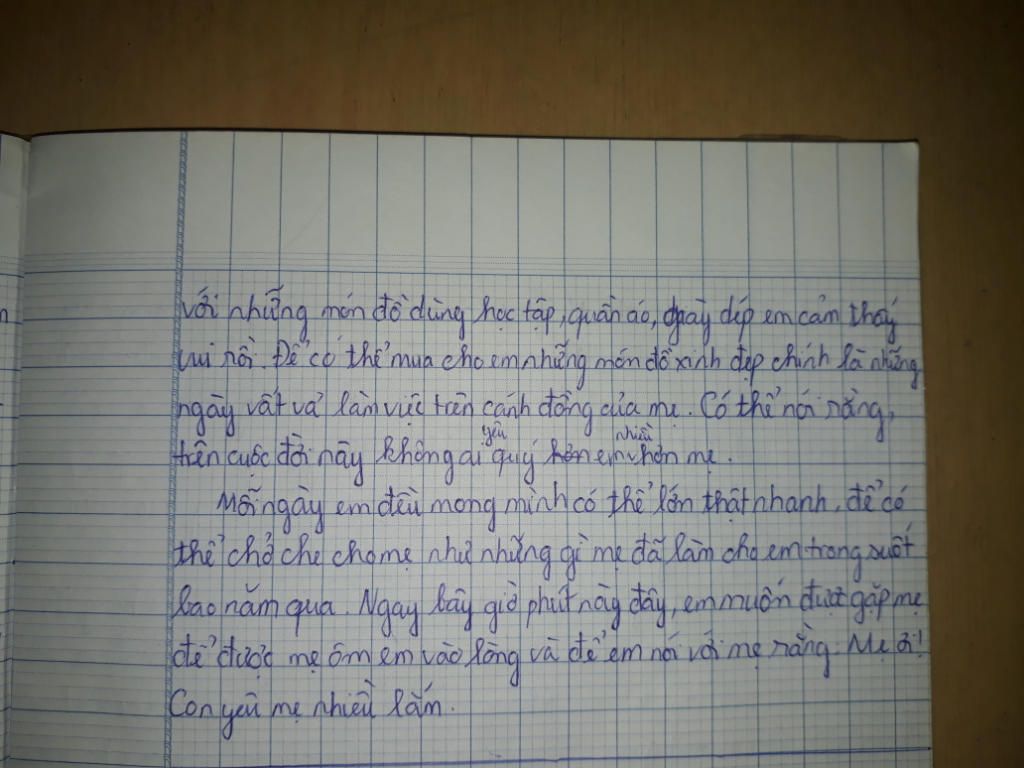 với những món đồ dùng học tập, quần áo, giày dép em cảm thấy
vui rồi. Để có thể mua cho em những món đồ xinh đẹp chính là những
ngày vất vả làm việc trên cánh đồng của mẹ. Có thể nói rằng,
trên cuộc đời này không ai yêu quý em nhiều hơn mẹ.
Mỗi ngày em đều mong mình có thể lớn thật nhanh, để có
thể chở che cho mẹ như những gì mẹ đã làm cho em trong suốt
bao năm qua. Ngay bây giờ phút này đây, em muốn được gặp mẹ
để được mẹ ôm em vào lòng và để em nói với mẹ rằng. Mẹ ơi!
Con yêu mẹ nhiều lắm.